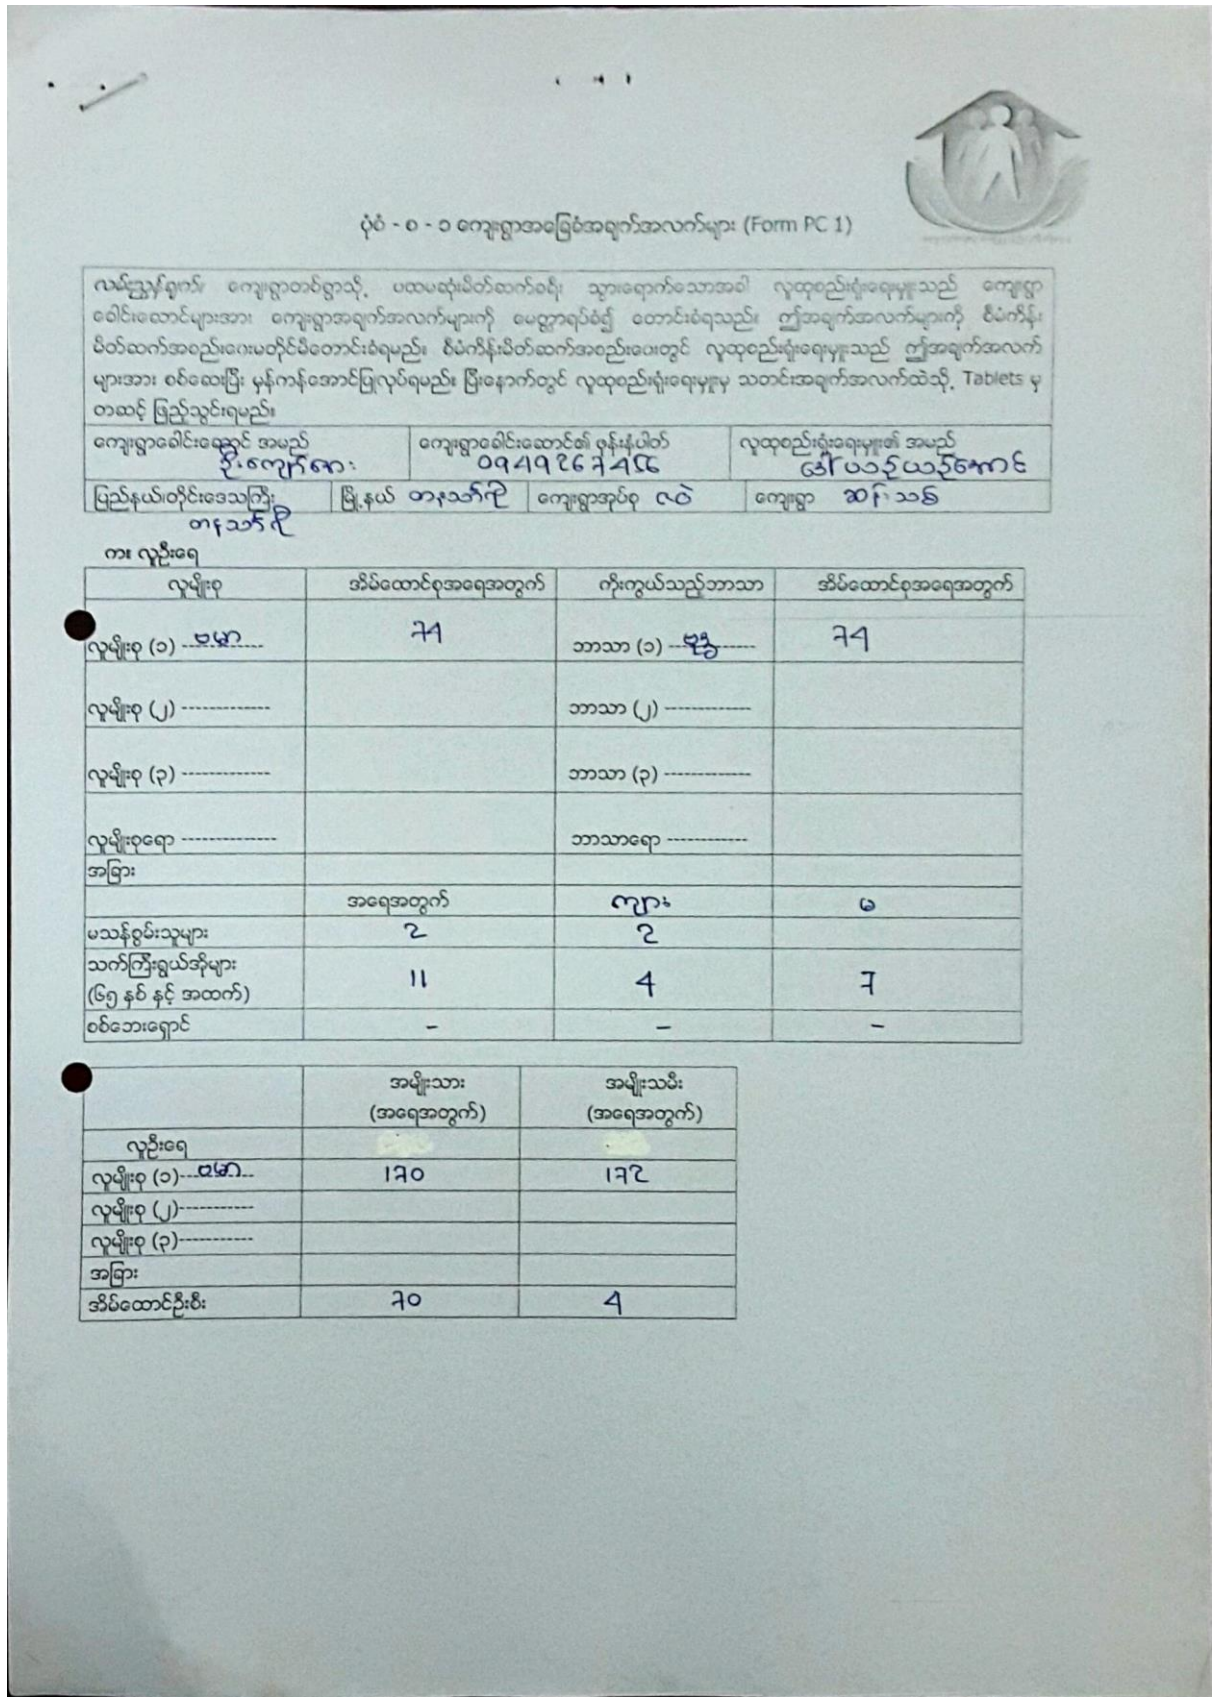 ပုံစံ - စ - ၁ ကျေးရွာအခြေခံအချက်အလက်များ (Form PC 1)
လမ်းညွှန်ချက်၊ ကျေးရွာတစ်ရွာသို့ ပထမဆုံးမိတ်ဆက်ခရီး သွားရောက်သောအခါ လူထုစည်းရုံးရေးမှူးသည် ကျေးရွာ
ခေါင်းဆောင်များအား ကျေးရွာအချက်အလက်များကို မေတ္တာရပ်ခံ၍ တောင်းခံရသည်။ ဤအချက်အလက်များကို စီမံကိန်း
မိတ်ဆက်အစည်းဝေးမတိုင်မီတောင်းခံရမည်။ စီမံကိန်းမိတ်ဆက်အစည်းဝေးတွင် လူထုစည်းရုံးရေးမှူးသည် ဤအချက်အလက်
များအား စစ်ဆေးပြီး မှန်ကန်အောင်ပြုလုပ်ရမည်။ ပြီးနောက်တွင် လူထုစည်းရုံးရေးမှူးမှ သတင်းအချက်အလက်ထဲသို့ Tablets မှ
တဆင့် ဖြည့်သွင်းရမည်။
ကျေးရွာခေါင်းဆောင် အမည် ကျေးရွာခေါင်းဆောင်၏ ဖုန်းနံပါတ် လူထုစည်းရုံးရေးမှူး၏ အမည်
ဦးကျော်စား 0949267456
ပြည်နယ်၊တိုင်းဒေသကြီး မြို့နယ် တနင်္သာရီ ကျေးရွာအုပ်စု ကျေးရွာ ဆင်သစ်
တနင်္သာရီ
က။ လူဦးရေ
လူမျိုးစု အိမ်ထောင်စုအရေအတွက် ကိုးကွယ်သည့်ဘာသာ အိမ်ထောင်စုအရေအတွက်
လူမျိုးစု (၁) ဗမာ 74 ဘာသာ (၁) ဗုဒ္ဓ 74
လူမျိုးစု (၂) ------------- ဘာသာ (၂) -------------
လူမျိုးစု (၃) ------------- ဘာသာ (၃) -------------
လူမျိုးစုရော -------------- ဘာသာရော ------------
အခြား
အရေအတွက် ကျား မ
မသန်စွမ်းသူများ 2 2
သက်ကြီးရွယ်အိုများ
(၆၅ နှစ် နှင့် အထက်) 11 4 7
စစ်ဘေးရှောင် - - -
အမျိုးသား အမျိုးသမီး
(အရေအတွက်) (အရေအတွက်)
လူဦးရေ
လူမျိုးစု (၁) ဗမာ 170 172
လူမျိုးစု (၂)-----------
လူမျိုးစု (၃)-----------
အခြား
အိမ်ထောင်ဦးစီး 70 4